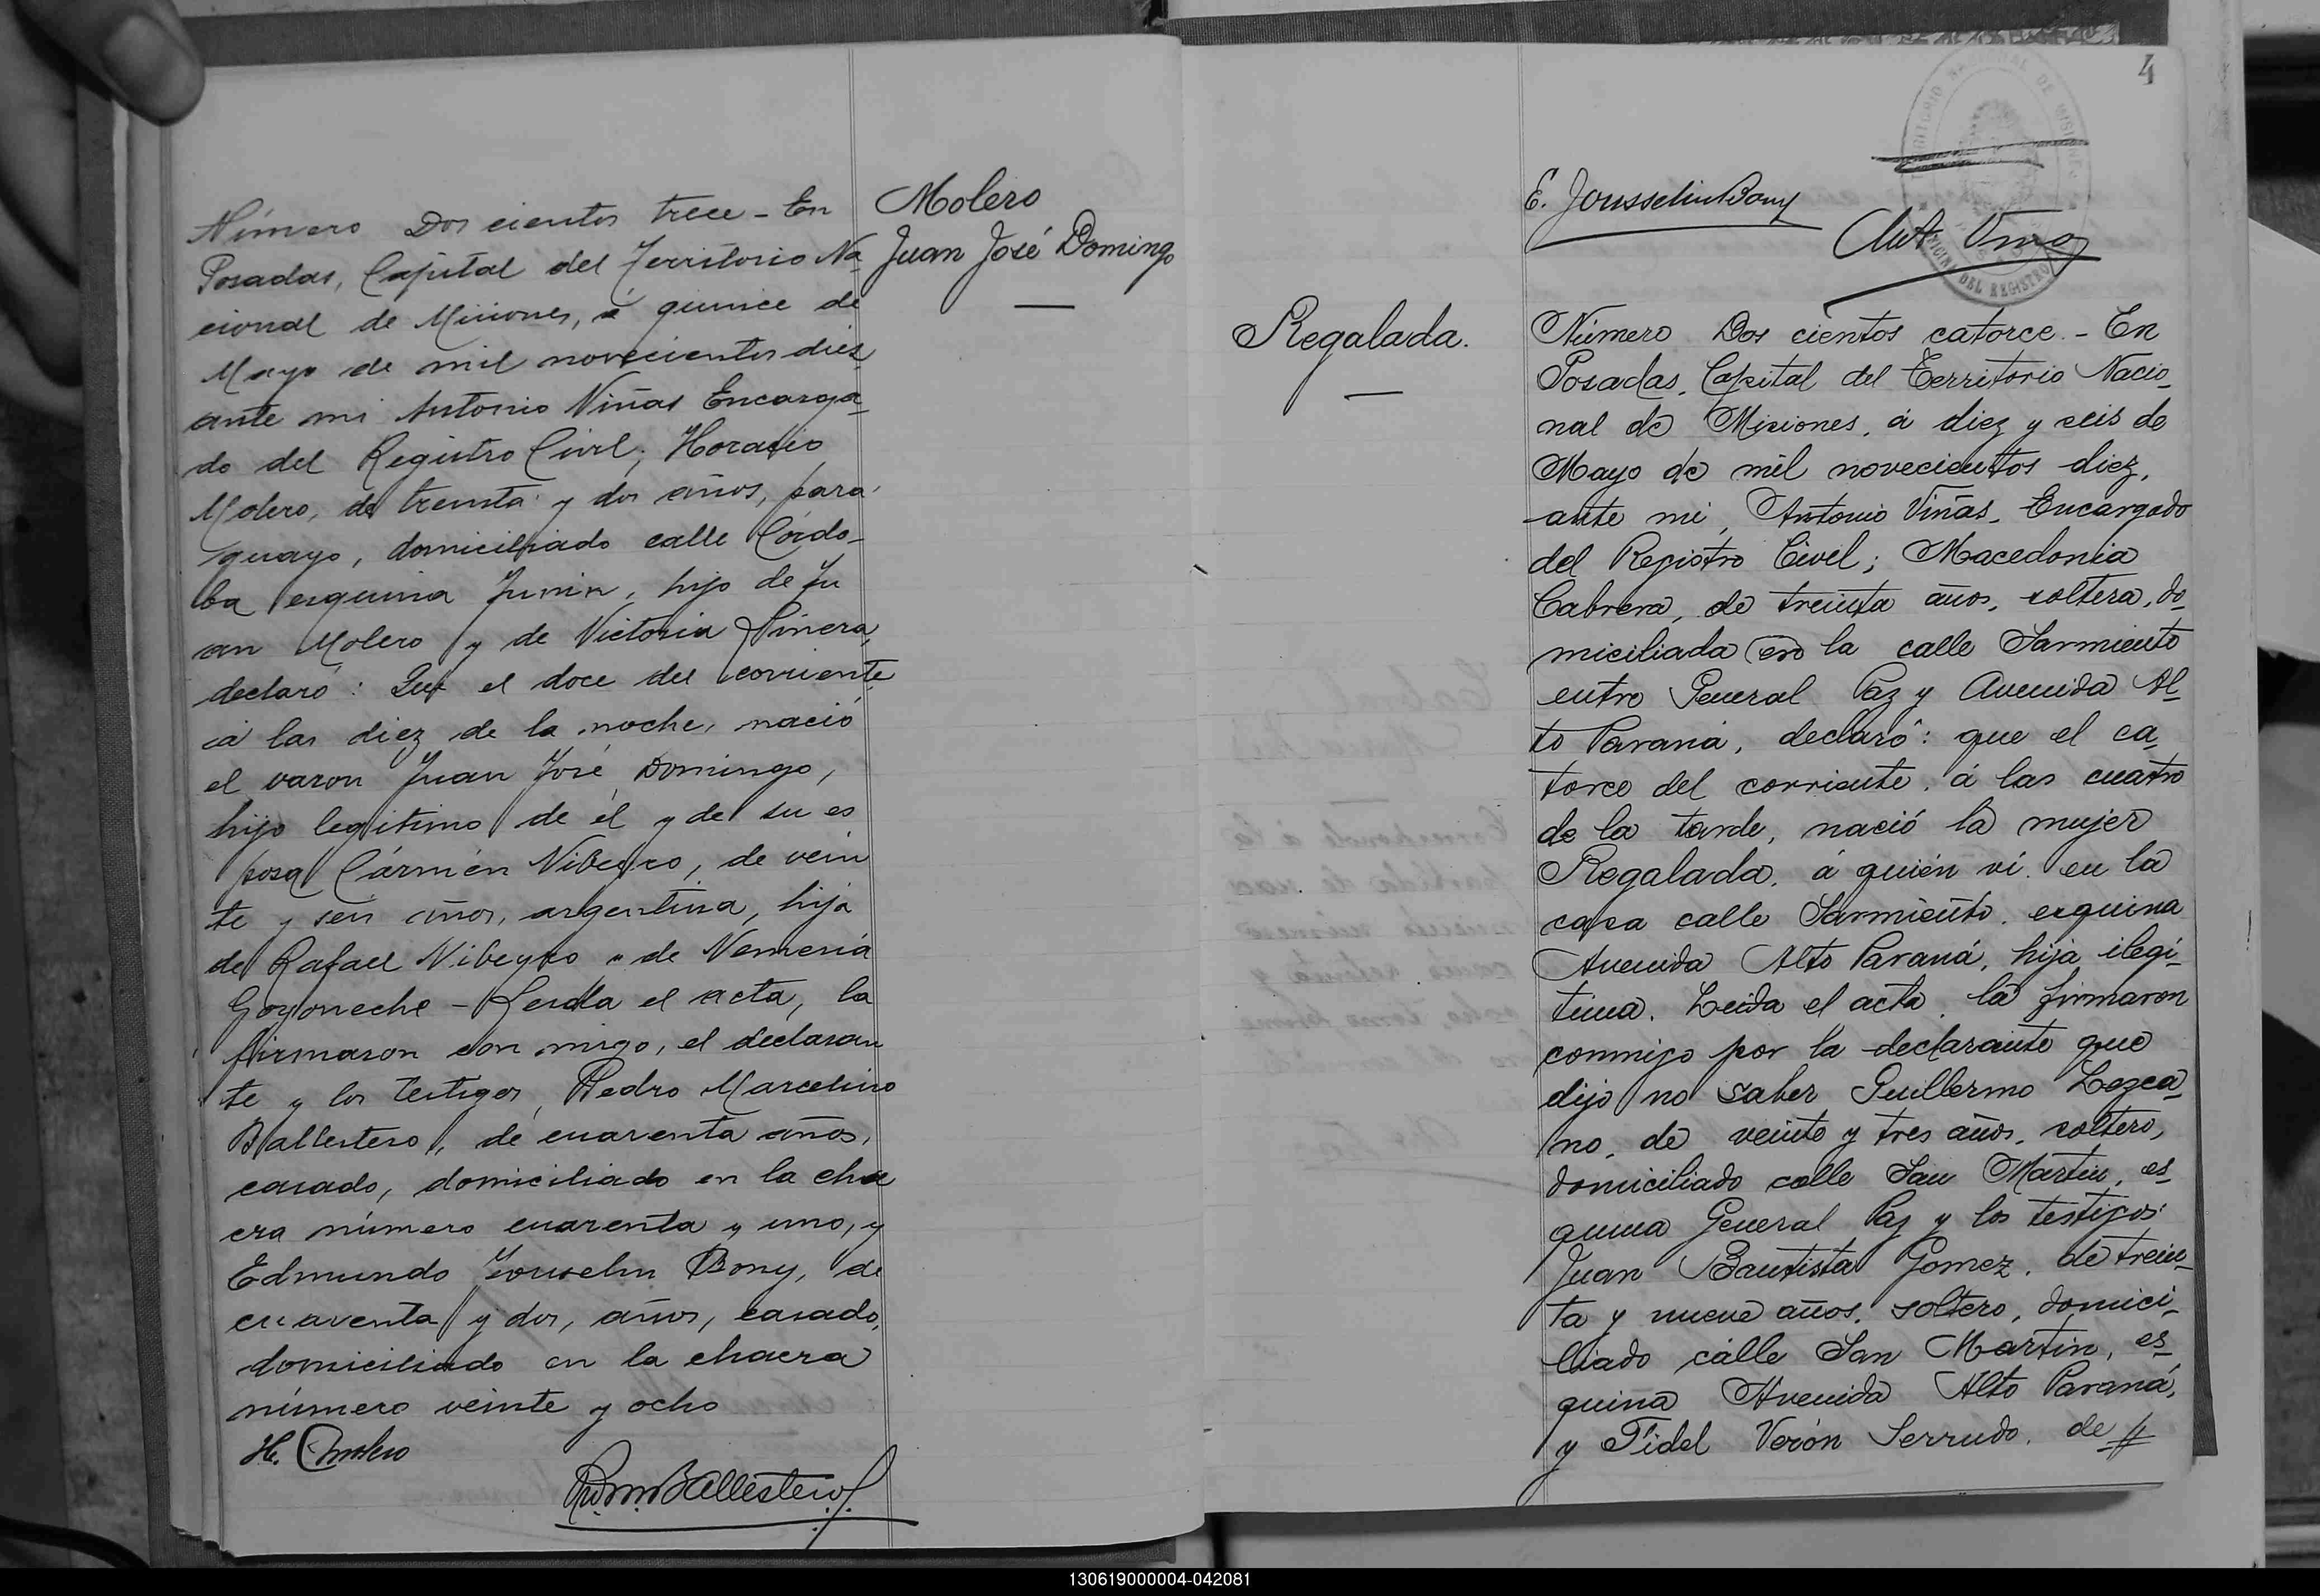 Número Dos cientos trece - En
Posadas, Capital del Territorio Na
cional de Misiones, á quince de
Mayo de mil novecientos diez
ante mi Antonio Viñas Encarga_
do del Registro Civil; Horacio
Molero, de treinta y dos años, para
guayo, domiciliado calle Córdo_
ba esquina Junin, hijo de Ju
an Molero y de Victoria Piñera,
declaró: Que el doce del corriente
á las diez de la noche, nació
el varon Juan José Domingo,
hijo legitimo de él y de su es
posa Cármen Nibeyro, de vein
te y seis años, argentina, hija
de Rafael Nibeyro y de Nemesia
Goyoneche - Leida el acta, la
firmaron con migo, el declaran
te y los testigos, Pedro Marcelino
Ballestero, de cuarenta años,
casado, domiciliado en la cha
cra número cuarenta y uno, y
Edmundo Jousselin Bony, de
cuarenta y dos, años, casado,
domiciliado en la chacra
número veinte y ocho
H. Molero
Ballestero
Molero
Juan José Domingo
4
E. Jousselin Bony
Ant Viñas
DEL REGISTRO
Regalada.
Número Dos cientos catorce. - En
Posadas, Capital del Territorio Nacio_
nal de Misiones, á diez y seis de
Mayo de mil novecientos diez,
ante mi, Antonio Viñas, Encargado
del Registro Civil; Macedonia
Cabrera, de treinta años, soltera, do_
miciliada en la calle Sarmiento
entre General Paz y Avenida Al_
to Paraná, declaró: que el ca_
torce del corriente, á las cuatro
de la tarde, nació la mujer
Regalada, á quién ví en la
casa calle Sarmiento, esquina
Avenida Alto Paraná, hija ilegi_
tima. Leida el acta, la firmaron
conmigo por la declarante que
dijo no saber Guillermo Lezca_
no, de veinte y tres años, soltero,
domiciliado calle San Martin, es_
quina General Paz y los testigos:
Juan Bautista Gomez, de trein_
ta y nueve años, soltero, domici_
liado cálle San Martin, es_
quina Avenida Alto Paraná,
y Fidel Verón Serrudo, de //
130619000004-042081